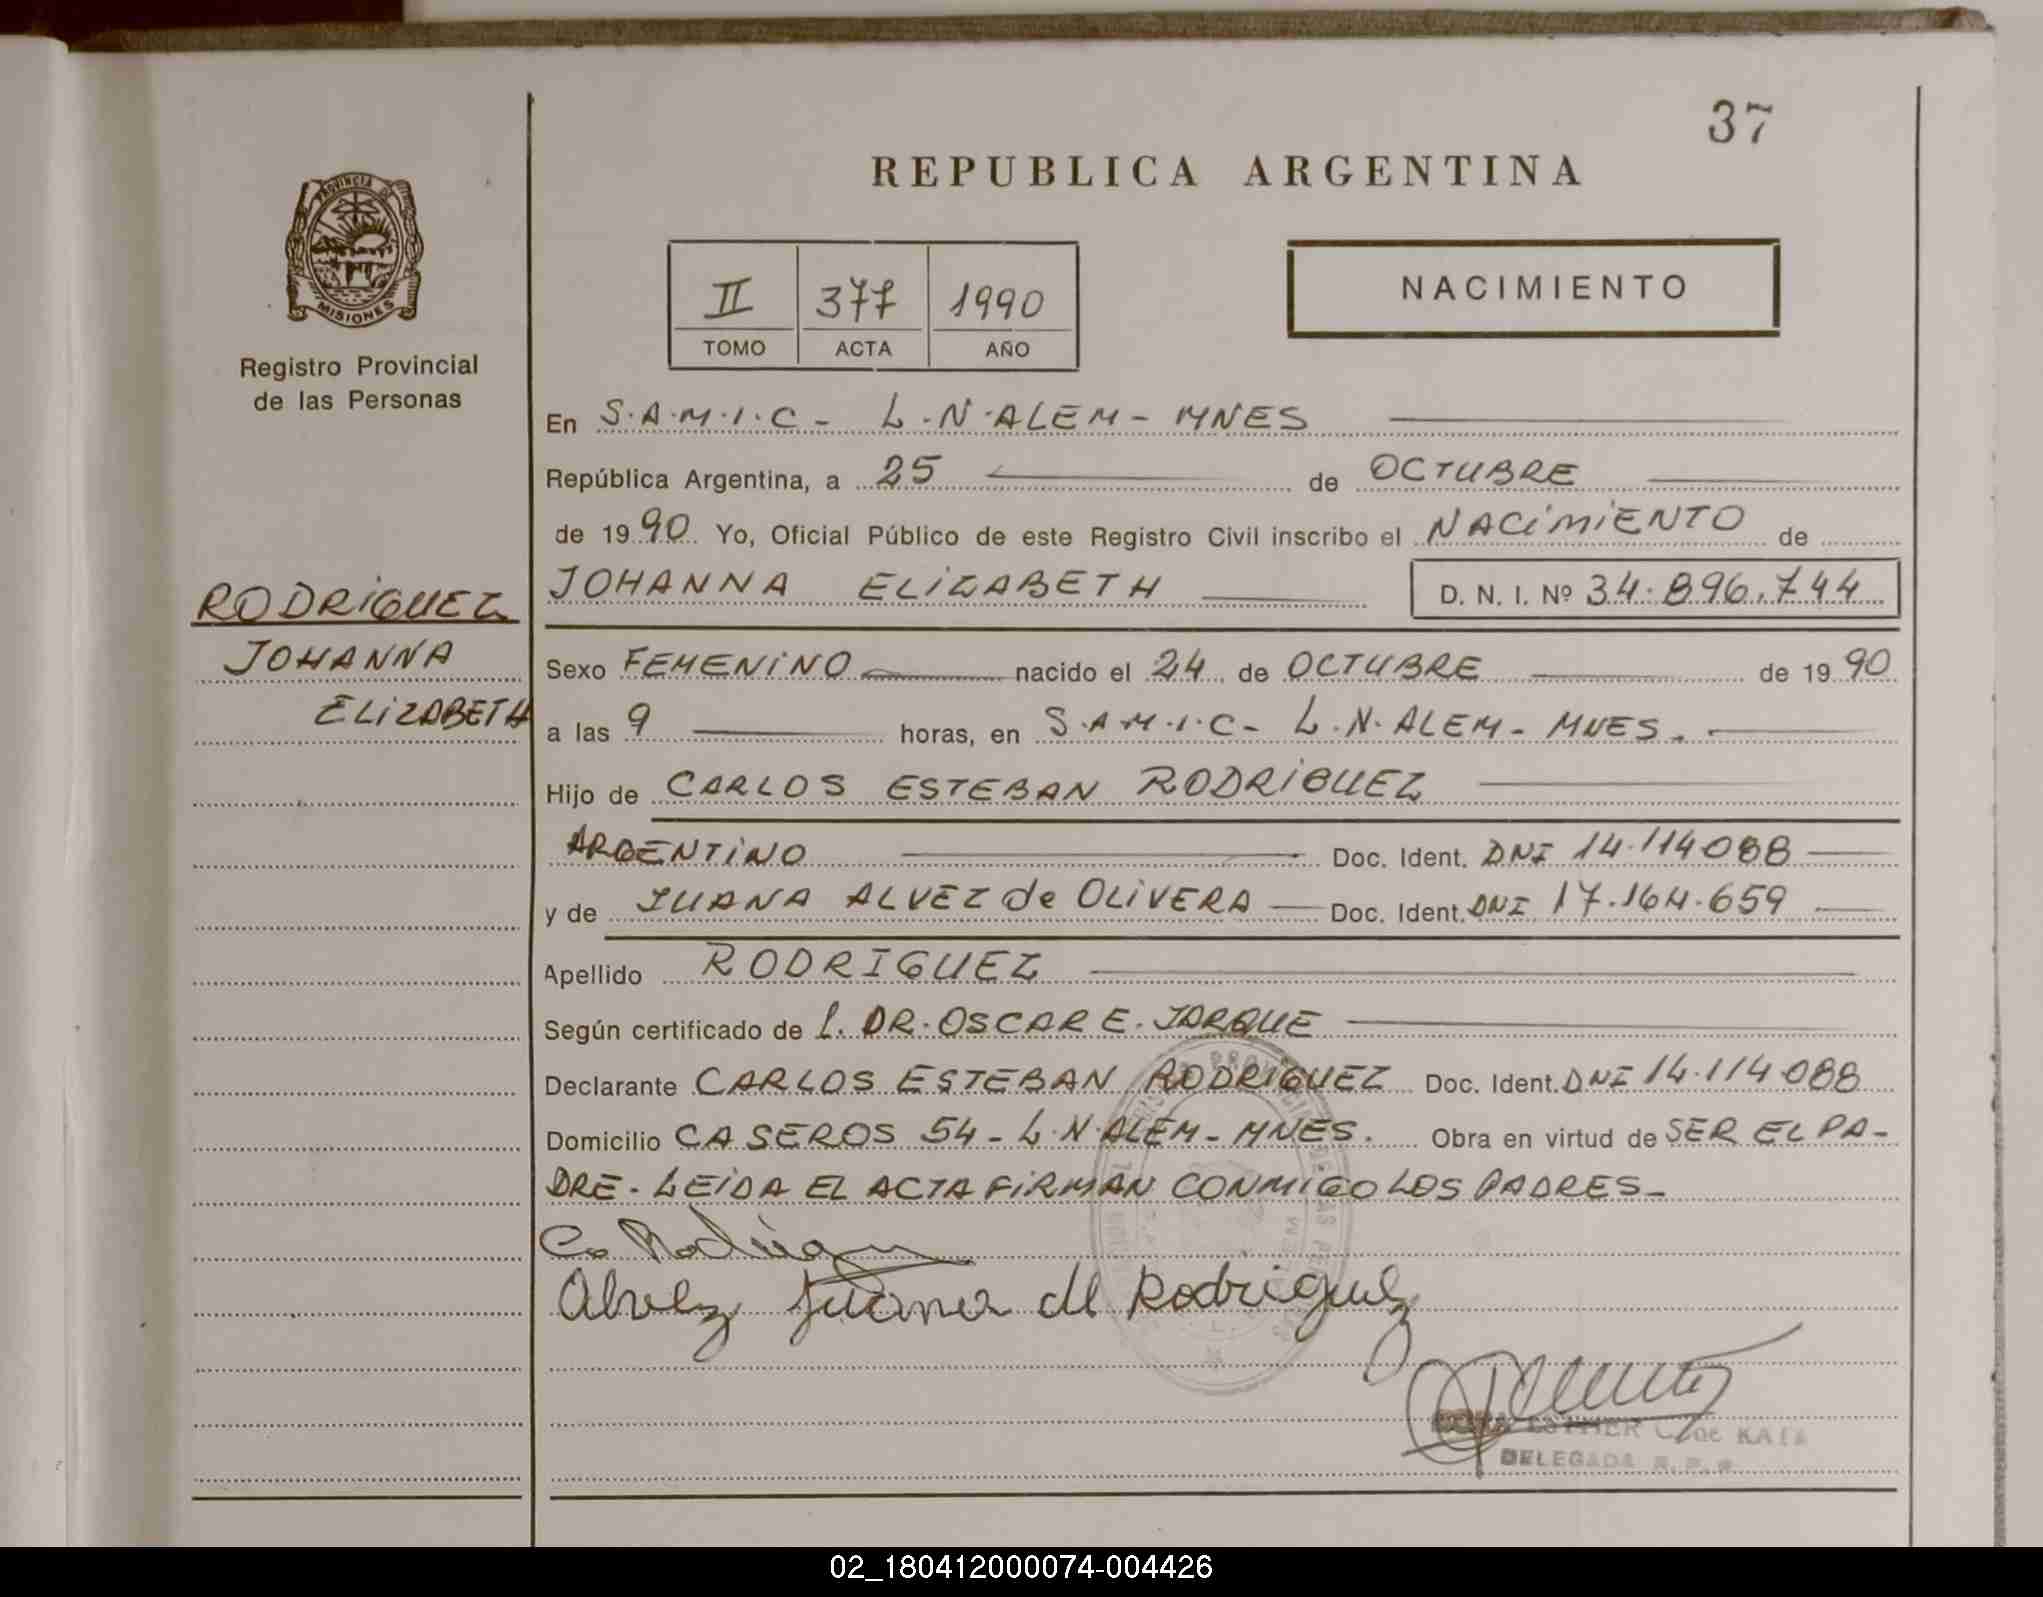 37
REPUBLICA ARGENTINA
PROVINCIA DE
MISIONES
Registro Provincial
de las Personas
II 377 1990
TOMO ACTA AÑO
NACIMIENTO
En S.A.M.I.C- L.N.ALEM- MNES
República Argentina, a 25 de OCTUBRE
de 1990 Yo, Oficial Público de este Registro Civil inscribo el NACIMIENTO de
RODRIGUEZ
JOHANNA
ELIZABETH
JOHANNA ELIZABETH D. N. I. Nº 34.896.744
Sexo FEMENINO nacido el 24 de OCTUBRE de 1990
a las 9 horas, en S.A.M.I.C- L.N.ALEM- MNES.
Hijo de CARLOS ESTEBAN RODRIGUEZ
ARGENTINO Doc. Ident. DNI 14.114088
y de JUANA ALVEZ de OLIVERA Doc. Ident. DNI 17.164.659
Apellido RODRIGUEZ
Según certificado de l. DR.OSCAR E. JARQUE
Declarante CARLOS ESTEBAN RODRIGUEZ Doc. Ident. DNI 14.114.088
Domicilio CASEROS 54- L.N.ALEM- MNES. Obra en virtud de SER EL PA-
DRE- LEIDA EL ACTA FIRMAN CONMIGO LOS PADRES-
Alvez Juana de Rodriguez
ESTHER de
DELEGADA R.P.
02_180412000074-004426